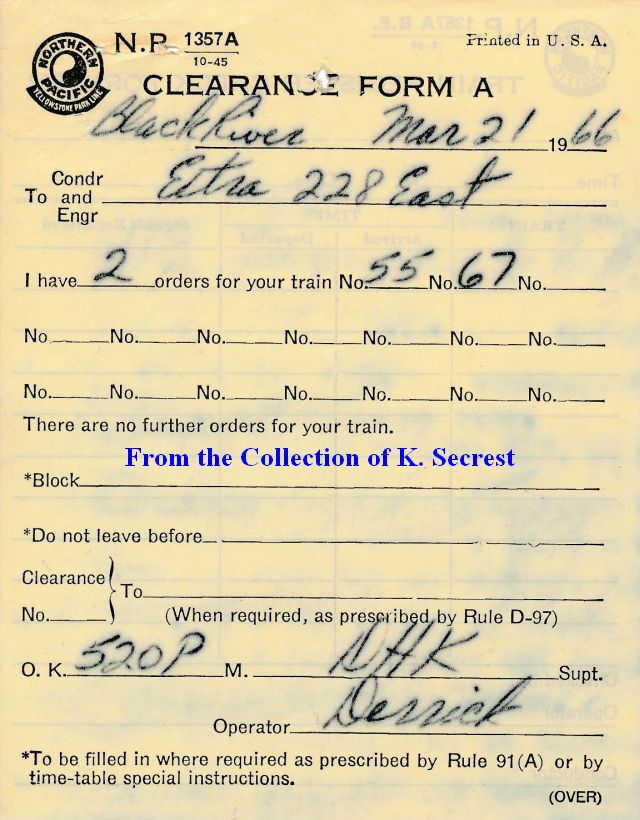 NORTHERN PACIFIC
YELLOWSTONE PARK LINE
N.P. 1357A
10-45
Printed in U. S. A.
CLEARANCE FORM A
Black River Mar 21 1966
Condr
To and Extra 228 East
Engr
I have 2 orders for your train No. 55 No. 67 No.
No. No. No. No. No. No. No.
No. No. No. No. No. No. No.
There are no further orders for your train.
From the Collection of K. Secrest
*Block
*Do not leave before
Clearance
To
No. (When required, as prescribed by Rule D-97)
O. K. 520P M. DHK Supt.
Operator Derrick
*To be filled in where required as prescribed by Rule 91(A) or by
time-table special instructions.
(OVER)